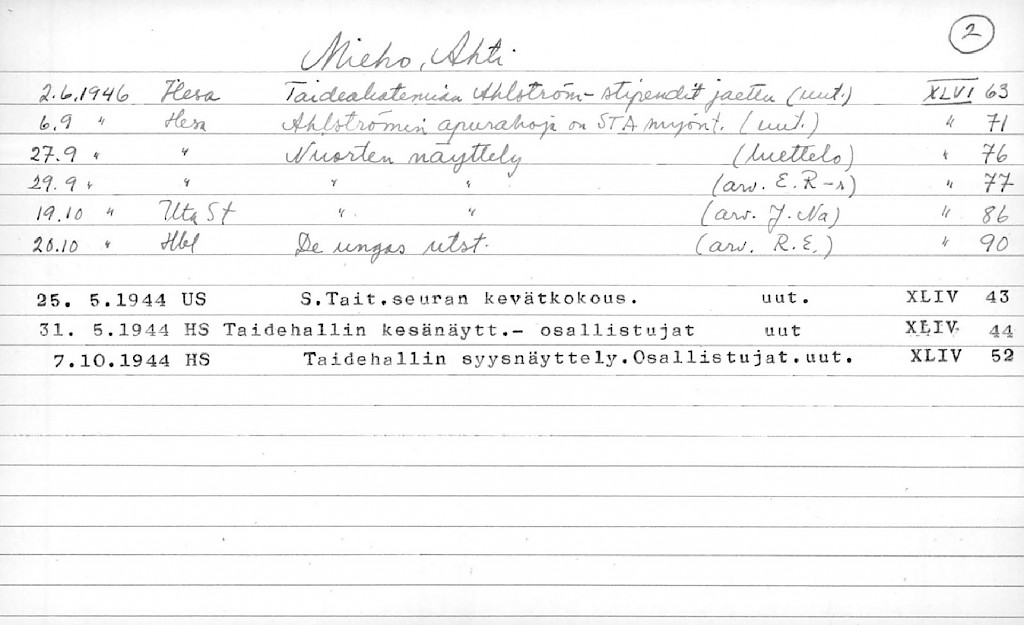 2
Mieho, Ahti
2.6.1946 Hesa Taideakatemian Ahlström-stipendit jaettu (uut.) XLVI 63
6.9 " Hesa Ahlströmin apurahoja on STA myönt. (uut.) " 71
27.9 " " Nuorten näyttely (luettelo) " 76
29.9 " " " " (arv. E.R-s) " 77
19.10 " Uta St " " (arv. J. Na) " 86
20.10 " Hbl De ungas utst. (arv. R.E.) " 90
25. 5.1944 US S.Tait.seuran kevätkokous. uut. XLIV 43
31. 5.1944 HS Taidehallin kesänäytt.- osallistujat uut XLIV 44
7.10.1944 HS Taidehallin syysnäyttely.Osallistujat.uut. XLIV 52